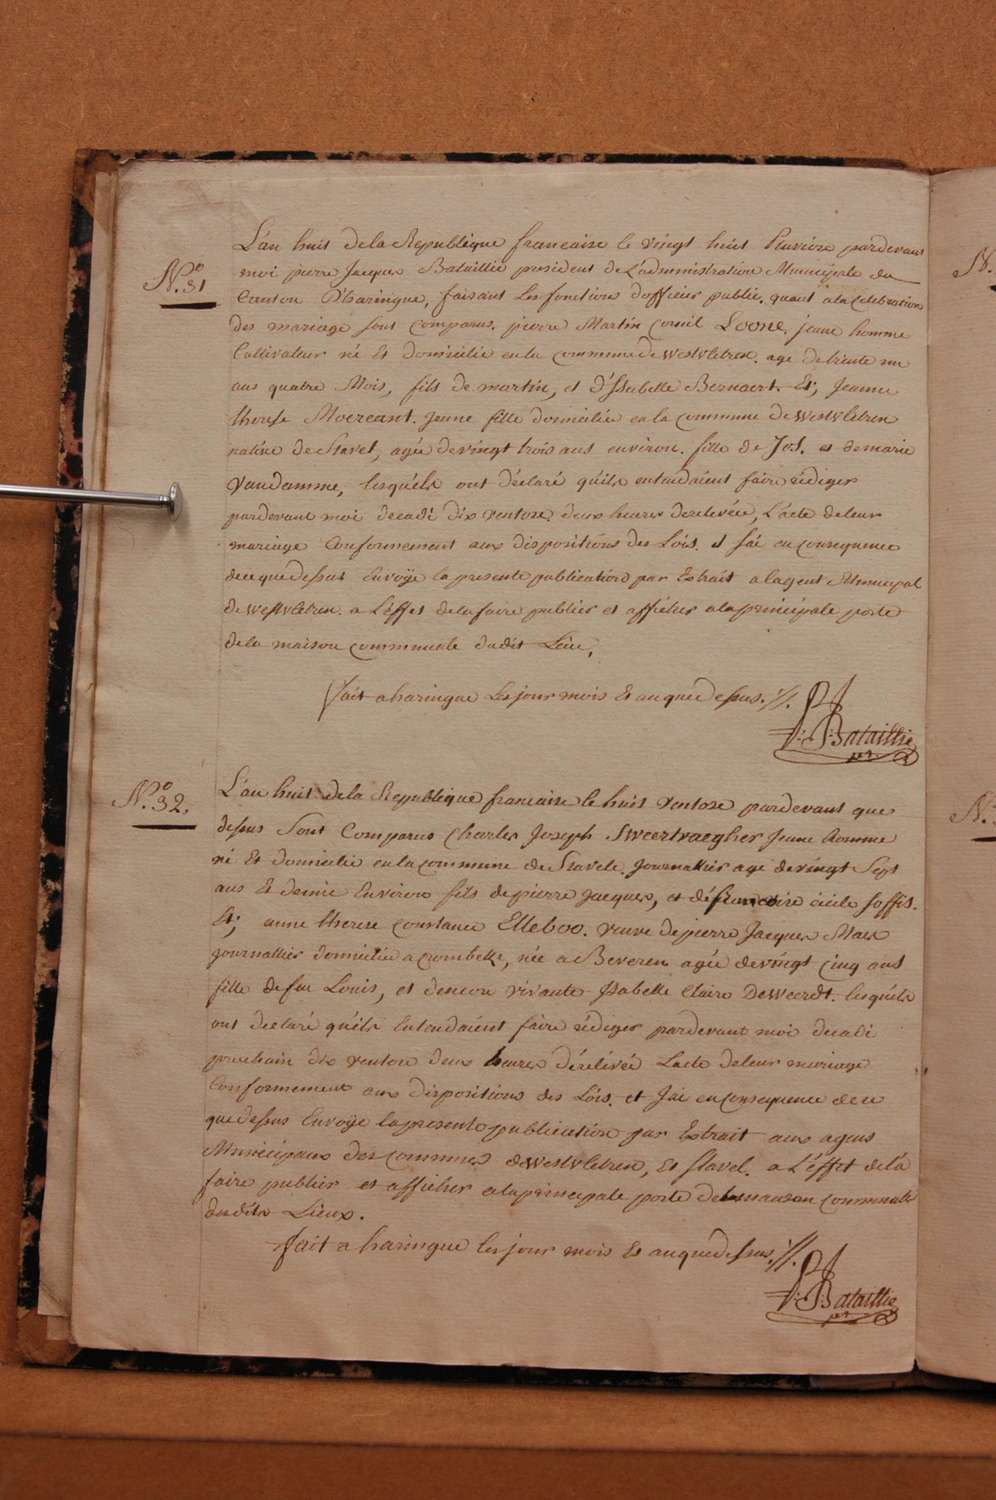 L'an huit de la Republique francaise le vingt huit Pluviose pardevant
N.º 31
moi pierre Jacque Bataillie president de L'administration Municipale du
Canton D'haringue, faisant les fonctions d'officier public. quant a la Celebration
des mariage sont comparus. pierre Martin Corneil Loone. jeune homme
Cultivateur né Et domicilié en la commune de westvletren. age de trente un
ans quatre Mois, fils de martin, et d'Isabelle Bernaert. Et, Jeanne
therese Moereant. jeune fille domiciliée en la commune de westvletren
native de Stavel, agée de vingt trois ans environ. fille de Jos. et de marie
Vandamme, lesquéls ont déclaré qu'ils entendaient faire rédiger
pardevant moi decadi dix ventose, deux heures de relevée, L'acte de leur
mariage Conformement aux dispositions des Lois. et J'ai en consequence
de ce que dessus Envoÿe la presente publication par Extrait a l'agent Municipal
de westvletren. a L'éffet de la faire publier et afficher a la principale porte
de la maison communale du dit Lieu,
fait a haringue les jour mois Et an que dessus.
P: J: Bataillie
prs
N.º 32.
L'an huit de la Republique francaise le huit ventose pardevant que
dessus Sont Comparus Charles Joseph Sweertvaegher Jeune homme
né Et domicilié en la commune de Stavele. Journallier agé de vingt Sept
ans Et demie Environ fils de pierre Jacques, et de francoise cicile soffis.
Et; anne therese constance Elleboo. veuve de pierre Jacques Maes
journallier domiciliée a crombeke, née a Beveren agée de vingt Cinq ans
fille de feu Louis, et d'encore vivante Isabelle Claire Deweerdt. lesquéls
ont declaré qu'ils Entendaient faire rédiger pardevant moi decadi
prochain dix ventose deux heures dérélévé L'acte de leur mariage
Conformement aux dispositions des Lois. et J'ai en consequence de ce
que dessus Envoÿe la presente publication par Extrait aux agens
Municipaux des communes de westvletren, Et stavel. a L'éffet de la
faire publier et afficher a la principale porte de la maison communale
dudits Lieux.
fait a haringue les jour mois Et an que dessus
P: J: Bataillie
prs
N.
N.